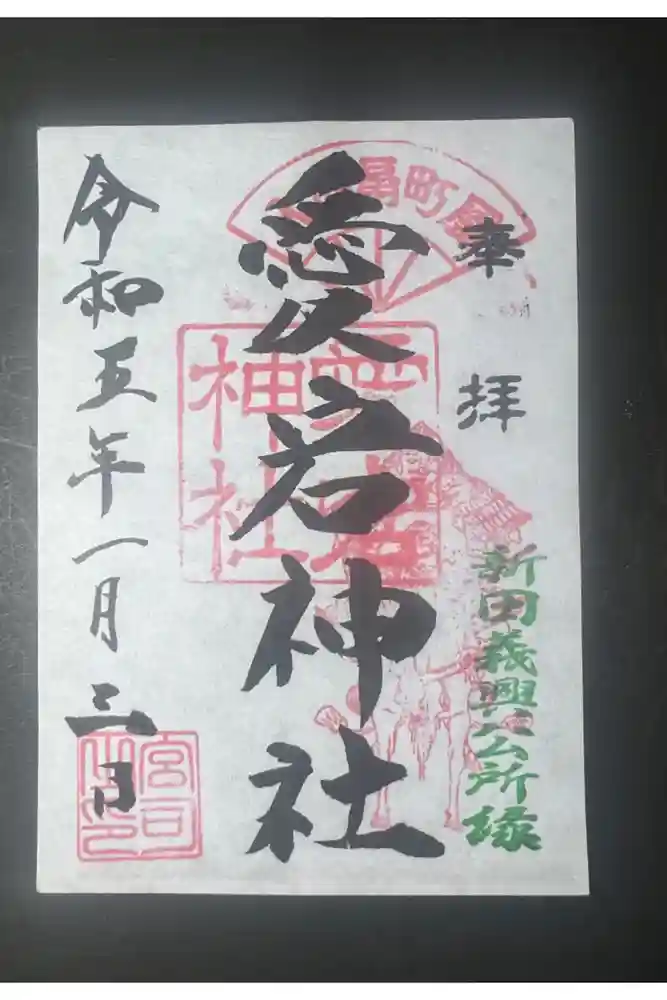 奉拝
新田義興公所縁
愛宕神社
愛宕神社
令和五年一月三日
宮司之印